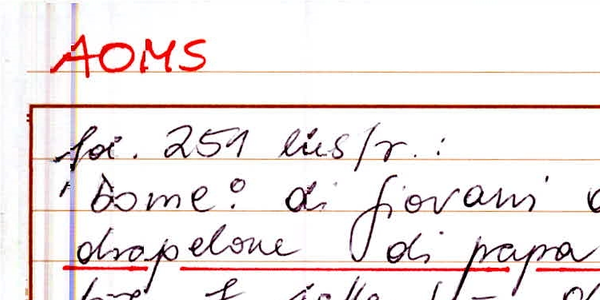 AOMS
foi. 251 bis/r.:
'Dome:° di giovani
drapelone di papa